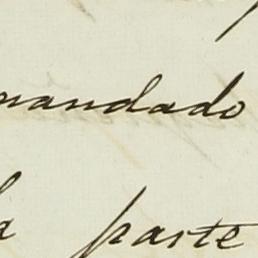 mandado
parte